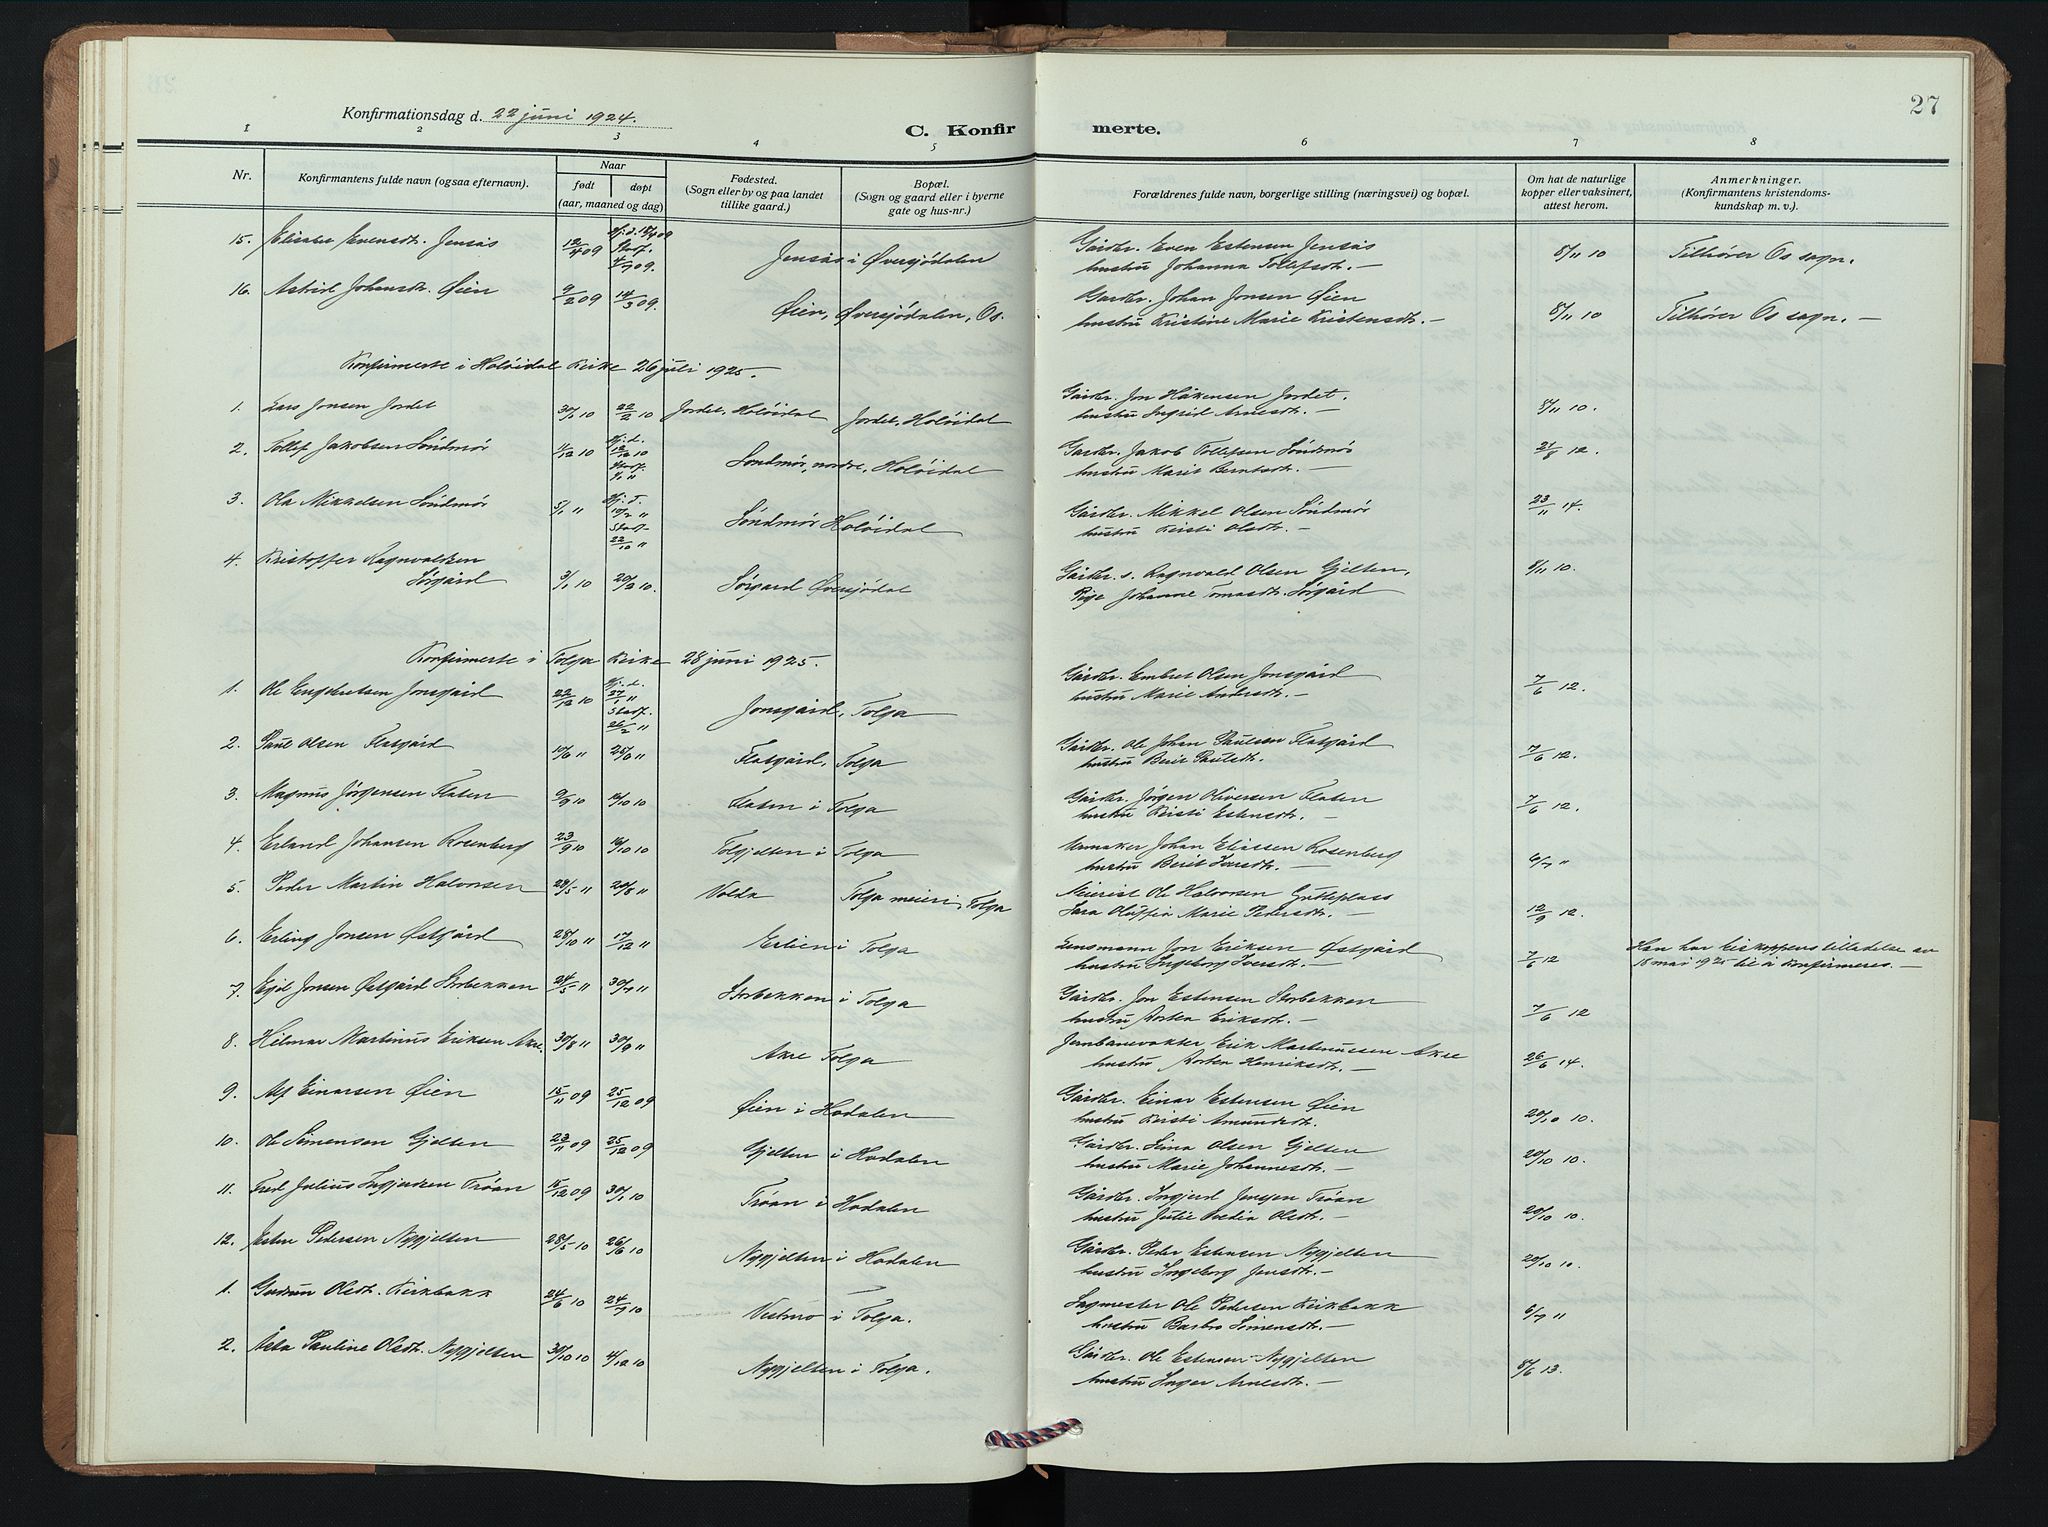 27
Konfirmationsdag d. 22 juni 1924.
C. Konfirmerte.
1 2 3 4 5 6 7 8
Nr. Konfirmantens fulde navn (ogsaa efternavn). Naar født døpt (aar, maaned og dag) Fødested. (Sogn eller by og paa landet tillike gaard.) Bopæl. (Sogn og gaard eller i byerne gate og hus-nr.) Forældrenes fulde navn, borgerlige stilling (næringsvei) og bopæl. Om hat de naturlige kopper eller vaksinert, attest herom. Anmerkninger. (Konfirmantens kristendomskundskap m. v.).
15. Evensdt. Jensås 12/4 09 Hj.d. Stadf. 4/7 09. Jensås i Øversjödalen Gårdbr. Even Estensen Jensås 8/11 10 Tilhører Os sogn.
hustru Johanna Tollefsdt. —
16. Astrid Johansdt. Øien 9/2 09 14/3 09. Øien, Øversjödalen, Os. Gårdbr. Johan Jonsen Øien
hustru Kristine Marie Kristensdt. — 8/11 10 Tilhører Os sogn. —
Konfirmerte i Holöidal Kirke 26 juli 1925.
1. Lars Jonsen Jordet 30/1 10 22/2 10 Jordet, Holöidal Jordet, Holöidal Gårdbr. Jon Håkensen Jordet.
hustru Ingrid Arnesdt. — 8/11 10.
2. Tollef Jakobsen Söndmör 1/12 10 Hj.d. 12/12 10 Stadf. Söndmör, nordre, Holöidal Gårdbr. Jakob Tollefsen Söndmör 21/8 12.
hustru Marit Berntsdt. —
3. Ola Mikkelsen Söndmör 5/1 11 Hj.d. 10/2 11 Stadf. 22/10 11 Söndmör Holöidal Gårdbr. Mikkel Olsen Söndmör 23/11 14.
hustru Kirsti Olsdt. —
4. Kristoffer Ragnvaldsen
Sörgård 3/1 10 20/2 10. Sörgard Øversjödal Gårdbr. s. Ragnvald Olsen Gjelten, 8/11 10.
Pige Johanne Tomasdt. Sörgård
Konfirmerte i Tolga Kirke 28 juni 1925.
1. Ole Engebretsen Jonsgård 22/12 10 Hj.d. 27/1 11 Stadf. 26/2 11 Jonsgård, Tolga Gårdbr. Embret Olsen Jonsgård 7/6 12.
hustru Marie Andersdt. —
2. Paul Olsen Flatgård 10/6 11 Flatgård, Tolga Gårdbr. Ole Johan Paulsen Flatgård
hustru Berit Paulsdt. 7/6 12.
3. Magnus Jörgensen Flaten 9/9 10 10/10 10 Flaten i Tolga Gårdbr. Jörgen Oliversen Flaten
hustru Kirsti Estensdt. — 7/6 12.
4. Erland Johansen Rosenberg 23/9 10 16/10 10 Tolgjelten i Tolga Urmaker Johan Eliassen Rosenberg
hustru Berit Iversdt. — 6/7 11
5. Peder Martin Halvorsen 28/5 11 20/8 11 Volda Tolga meieri, Tolga Meierist Ole Halvorsen
Sara Oluffia Marie Pedersdt. — 12/9 12.
6. Erling Jonsen Østgård 28/10 11 17/12 11 Erlien i Tolga Lensmann Jon Eriksen Østgård
hustru Ingeborg Iversdt. — 7/6 12 Han har biskoppens tilladelse av
18 mai 1925 til å konfirmeres. —
7. Egil Jonsen Østgård Storbekken 24/5 11 30/7 11 Storbekken i Tolga Gårdbr. Jon Estensen Storbekken
hustru Eriksdt. — 7/6 12
8. Hilmar Martinus Eriksen Akre. 30/8 11 30/9 11 Akre Tolga Jernbanevokter Erik Martinussen Akre
hustru Henriksdt. — 26/6 14.
9. Alf Einarsen Øien 15/11 09 25/12 09 Øien i Hodalen Gårdbr. Einar Estensen Øien
hustru Kirsti Amundsdt. 20/10 10.
10. Ole Simensen Gjelten 23/11 09 25/12 09 Gjelten i Hodalen Gårdbr. Olsen Gjelten
hustru Marie Johannesdt. — 20/10 10.
11. Fred Julius Tröan 15/12 09 30/1 10 Tröan i Hodalen Gårdbr. Jensen Tröan
hustru Julie Olsdt. — 20/10 10.
12. Esten Pedersen Nygjelten 28/5 10 26/6 10 Nygjelten i Hodalen Gårdbr. Peder Estensen Nygjelten
hustru Ingeborg Jensdt. — 20/10 10.
1. Gudrun Olsdt. Kirkbakk 24/6 10 24/7 10 Vestmo i Tolga. Sagmester Ole Pedersen Kirkbakk
hustru Barbro Simensdt. — 6/7 11
2. Åsta Pauline Olsdt. Nygjelten 30/10 10 4/12 10 Nygjelten i Tolga. Gårdbr. Ole Estensen Nygjelten
hustru Inger Arnesdt. — 8/6 13.